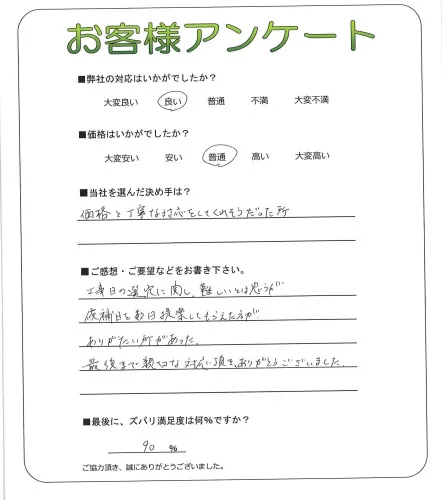 お客様アンケート
■弊社の対応はいかがでしたか?
大変良い 良い 普通 不満 大変不満
■価格はいかがでしたか?
大変安い 安い 普通 高い 大変高い
■当社を選んだ決め手は?
価格と丁寧な対応をしてくれそうだった所
■ご感想・ご要望などをお書き下さい。
工事日の選定に関し、難しいとは思うが
候補日を数日提案してもらえた方が
ありがたい所があった。
最後まで親切な対応頂き、ありがとうございました。
■最後に、ズバリ満足度は何%ですか?
90 %
ご協力頂き、誠にありがとうございました。